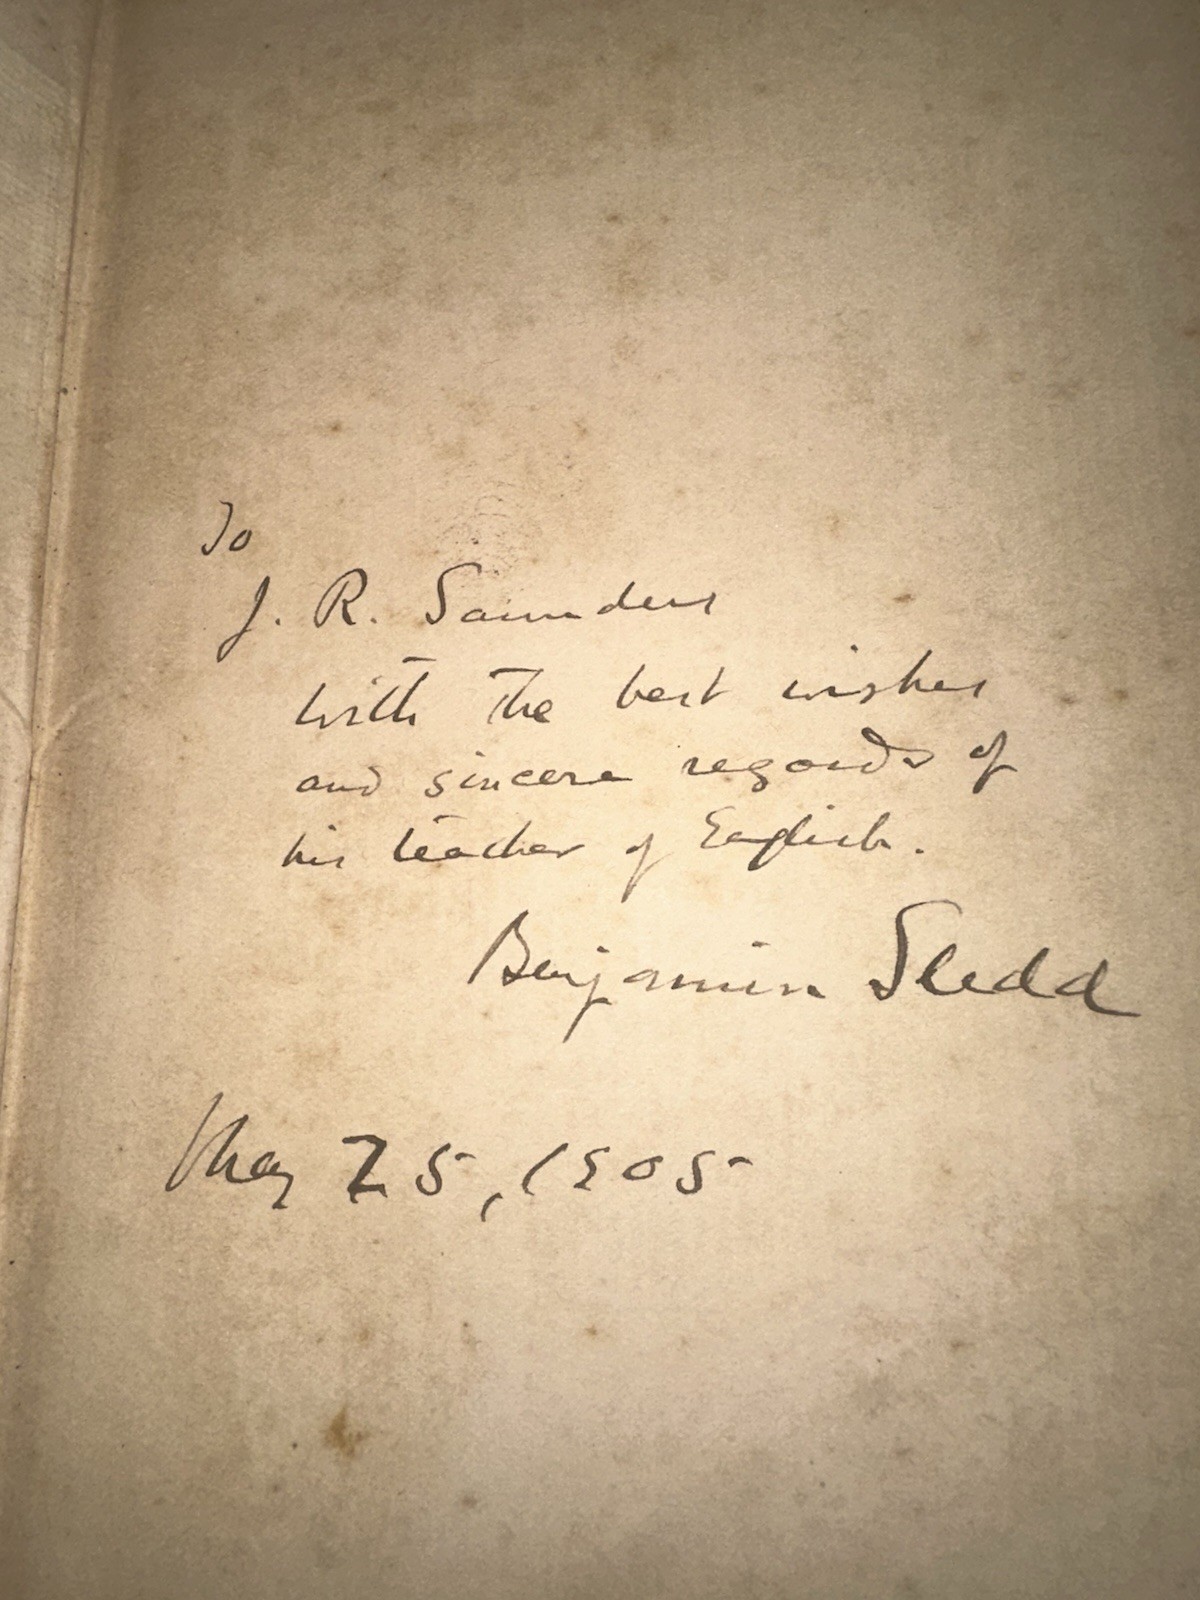 To
J. R. Saunders
with the best wishes
and sincere regards of
his teacher of English.
Benjamin Sledd
May 25, 1905